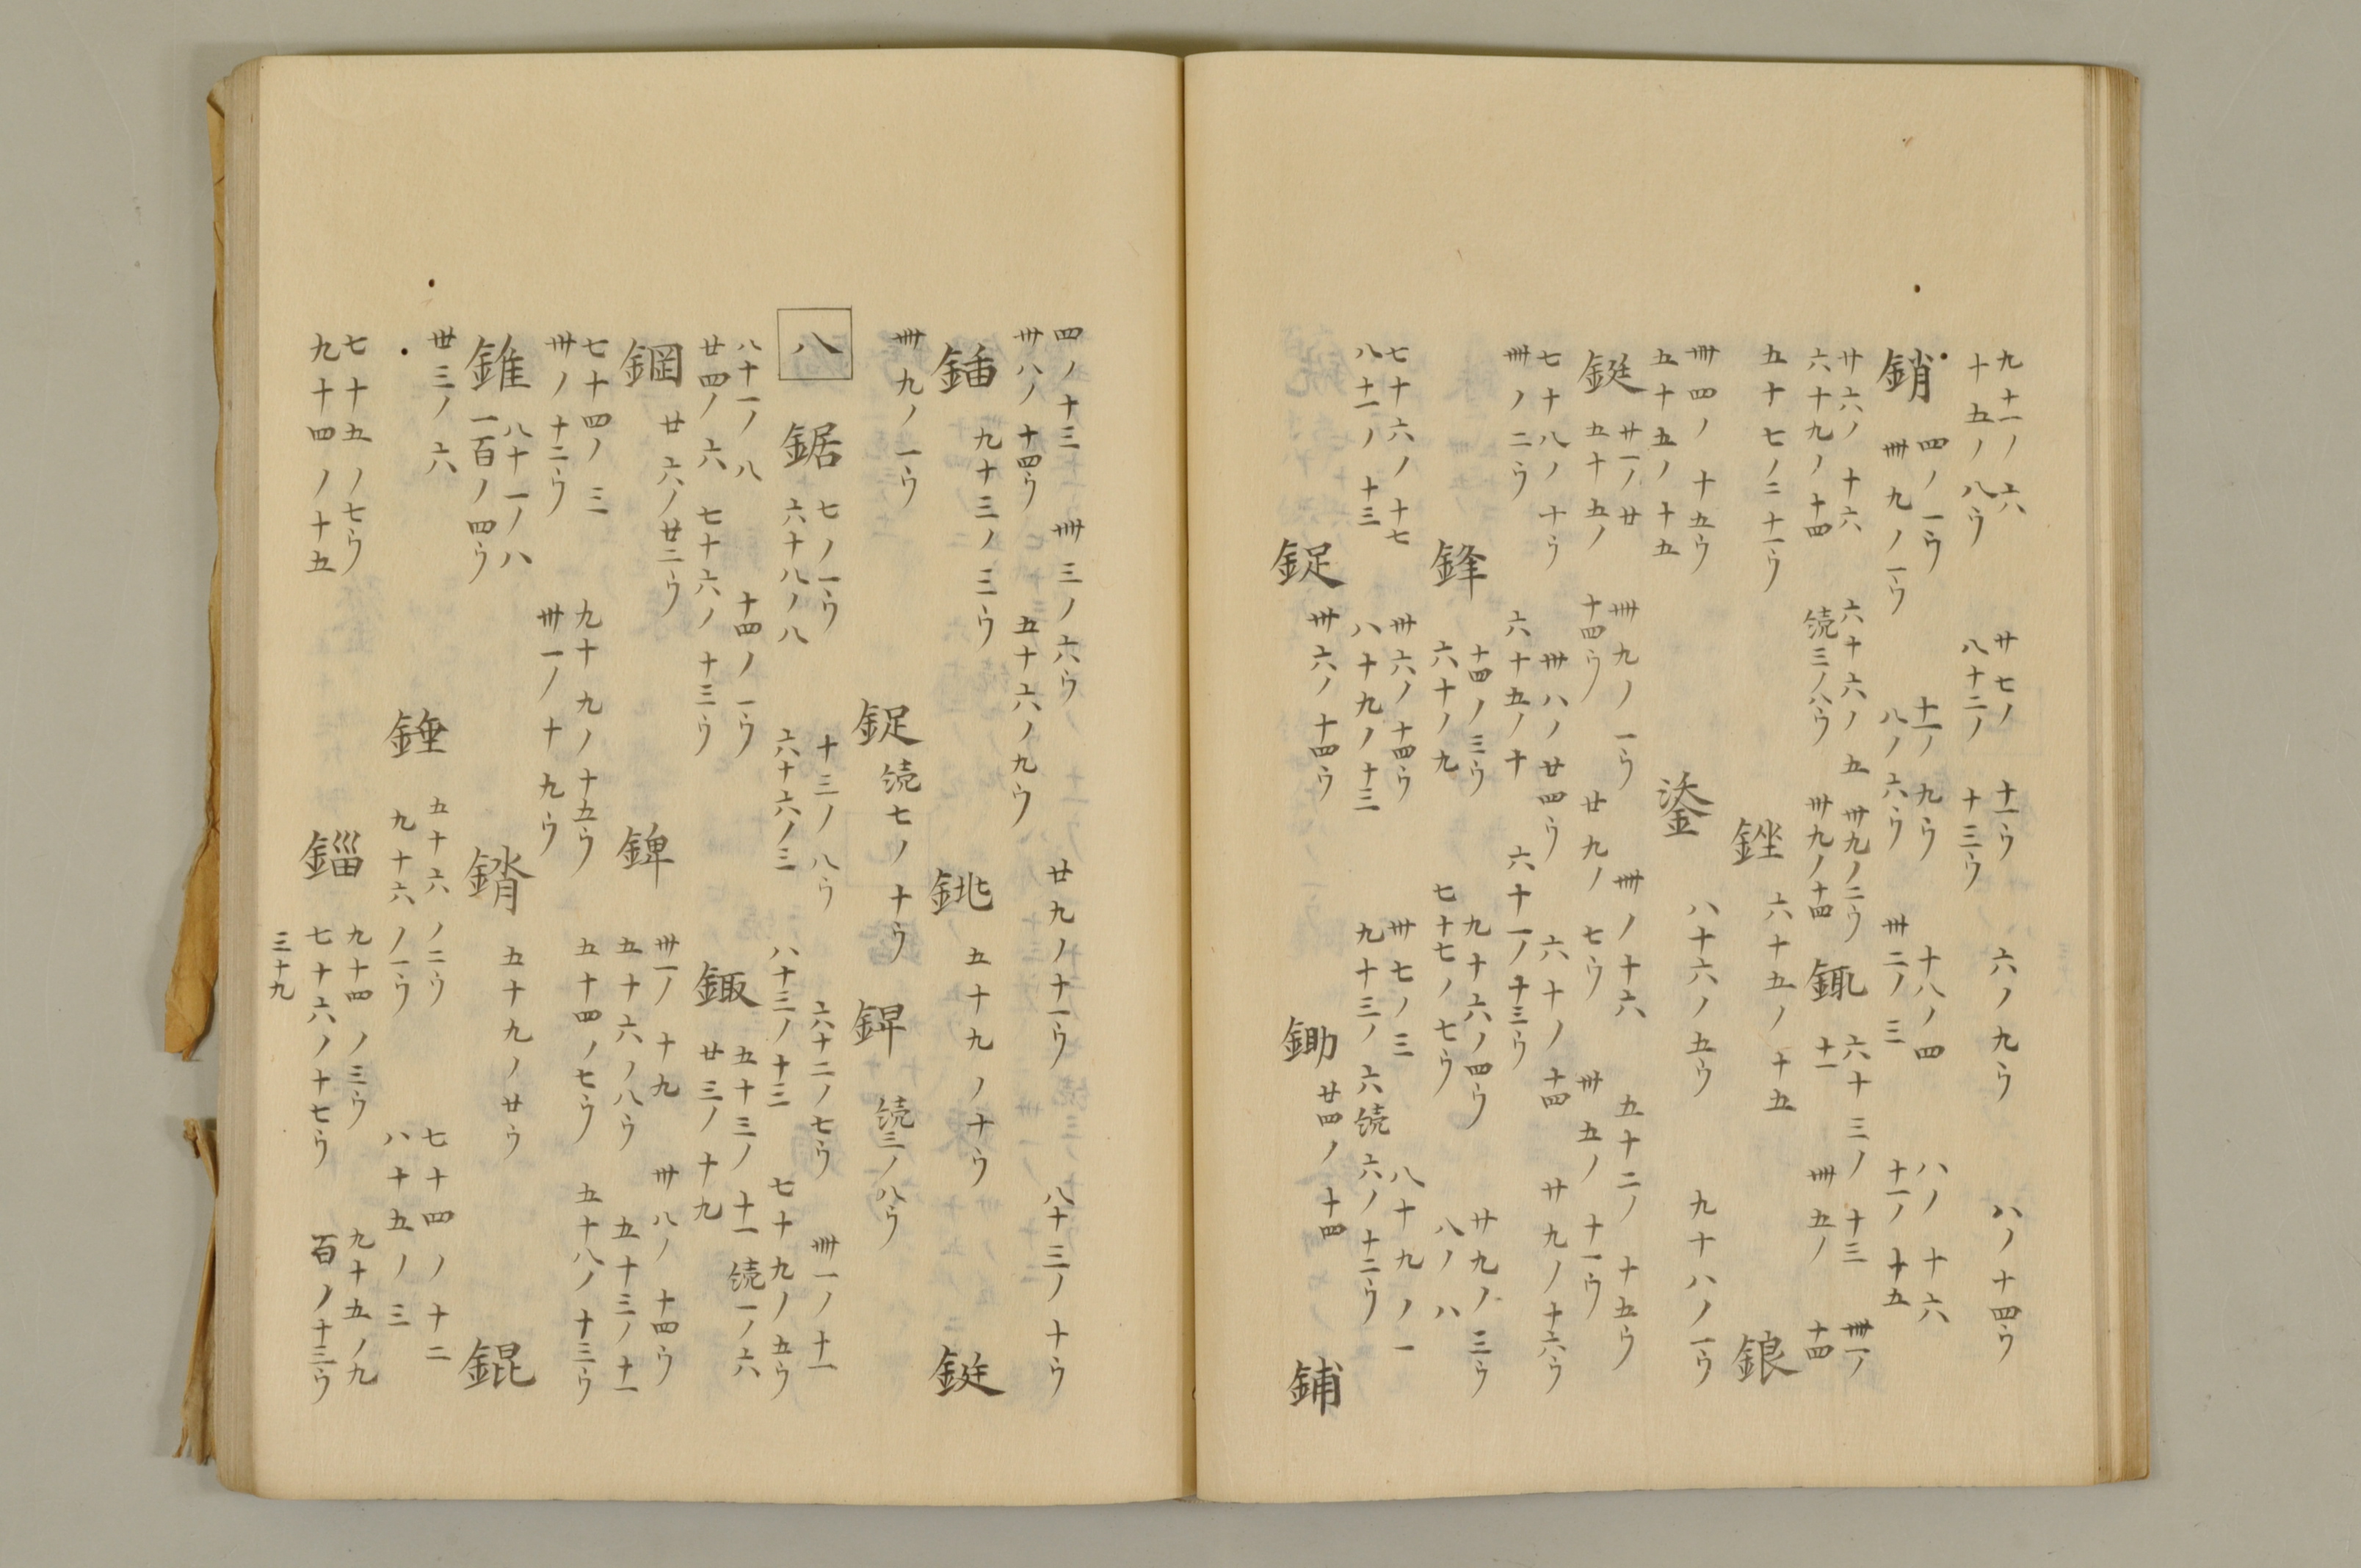 九十一ノ六 廿七ノ十一ウ 六ノ九ウ 八ノ十四ウ
十五ノ八ウ 八十二ノ十三ウ
銷 四ノ一ウ 十一ノ九ウ 十八ノ四 八ノ十六
卌九ノ一ウ 八ノ六ウ 卅二ノ三 十一ノ十五
廿六ノ十六 六十六ノ五 卌九ノ二ウ 六十三ノ十三 卌一ノ
六十九ノ十四 続三ノ八ウ 卌九ノ十四 鋷 十一 卌五ノ十四
五十七ノ二十一ウ 銼 六十五ノ十五 鋃
卌四ノ十五ウ 八十六ノ五ウ 九十八ノ一ウ
五十五ノ十五 鋈
鋌 廿一ノ廿 卌九ノ一ウ 卌ノ十六 五十二ノ十五ウ
五十五ノ十四ウ 廿九ノ七ウ 卌五ノ十一ウ
七十八ノ十ウ 卌八ノ廿四ウ 六十ノ十四 廿九ノ十六ウ
卌ノ二ウ 六十五ノ十 六十一ノ十三ウ
鋒 十四ノ三ウ 九十六ノ四ウ 廿九ノ三ウ
六十ノ九 七十七ノ七ウ 八ノ八
七十六ノ十七 卅六ノ十四ウ 卅七ノ三 八十九ノ一
八十一ノ十三 八十九ノ十三 九十三ノ六 続六ノ十二ウ
鋜 卅六ノ十四ウ 鋤 廿四ノ十四 鋪
四ノ十三 卌三ノ六ウ 廿九ノ十一ウ 八十三ノ十ウ
卅八ノ十四ウ 五十六ノ九ウ
鍤 九十三ノ三ウ 銚 五十九ノ十ウ 鋌
卌九ノ一ウ 鋜 続七ノ十ウ 銲 続三ノ八ウ
八 鋸 七ノ一ウ 十三ノ八ウ 六十二ノ七ウ 卌一ノ十一
六十八ノ八 六十六ノ三 八十三ノ十三 七十九ノ五ウ
八十一ノ八 十四ノ一ウ 五十三ノ十一 続一ノ六
廿四ノ六 七十六ノ十三ウ 鋷 廿三ノ十九
鋼 廿六ノ廿二ウ 錍 卅一ノ十九 卌八ノ十四ウ
五十六ノ八ウ 五十三ノ十一
七十四ノ三 九十九ノ十五ウ 五十四ノ七ウ 五十八ノ十三ウ
卅ノ十二ウ 卅一ノ十九ウ
錐 八十一ノ八 錔 五十九ノ廿ウ 錕
一百ノ四ウ
廿三ノ六 錘 五十六ノ二ウ 七十四ノ十二
九十六ノ一ウ 八十五ノ三
七十五ノ七ウ 錙 九十四ノ三ウ 九十五ノ九
九十四ノ十五 七十六ノ十七ウ 百ノ十三ウ
三十九